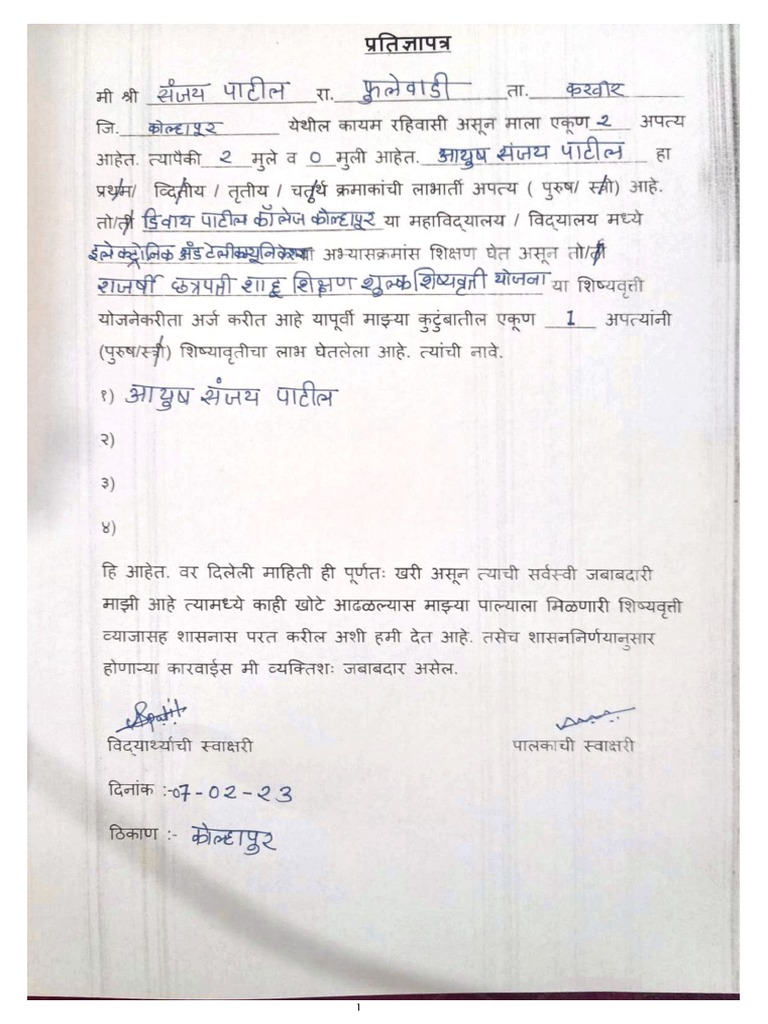 प्रतिज्ञापत्र
मी श्री संजय पाटील रा. फुलेवाडी ता. करवीर
जि. कोल्हापूर येथील कायम रहिवासी असून माला एकूण 2 अपत्य
आहेत. त्यापैकी 2 मुले व 0 मुली आहेत. आयुष संजय पाटील हा
प्रथम/ व्दितीय / तृतीय / चतुर्थ क्रमाकांची लाभार्ती अपत्य ( पुरुष/ स्त्री) आहे.
तो/ती डिवाय पाटील कॉलेज कोल्हापूर या महाविद्यालय / विद्यालय मध्ये
इलेक्ट्रोनिक अँड टेलीकम्युनिकेशन या अभ्यासक्रमांस शिक्षण घेत असून तो/ती
राजर्षी छत्रपती शाहू शिक्षण शुल्क शिष्यवृत्ती योजना या शिष्यवृत्ती
योजनेकरीता अर्ज करीत आहे यापूर्वी माझ्या कुटुंबातील एकूण 1 अपत्यांनी
(पुरुष/स्त्री) शिष्यावृतीचा लाभ घेतलेला आहे. त्यांची नावे.
१) आयुष संजय पाटील
२)
३)
४)
हि आहेत. वर दिलेली माहिती ही पूर्णतः खरी असून त्याची सर्वस्वी जबाबदारी
माझी आहे त्यामध्ये काही खोटे आढळल्यास माझ्या पाल्याला मिळणारी शिष्यवृत्ती
व्याजासह शासनास परत करील अशी हमी देत आहे. तसेच शासननिर्णयानुसार
होणाऱ्या कारवाईस मी व्यक्तिशः जबाबदार असेल.
विद्यार्थ्याची स्वाक्षरी पालकाची स्वाक्षरी
दिनांक :-07-02-23
ठिकाण :- कोल्हापुर
1